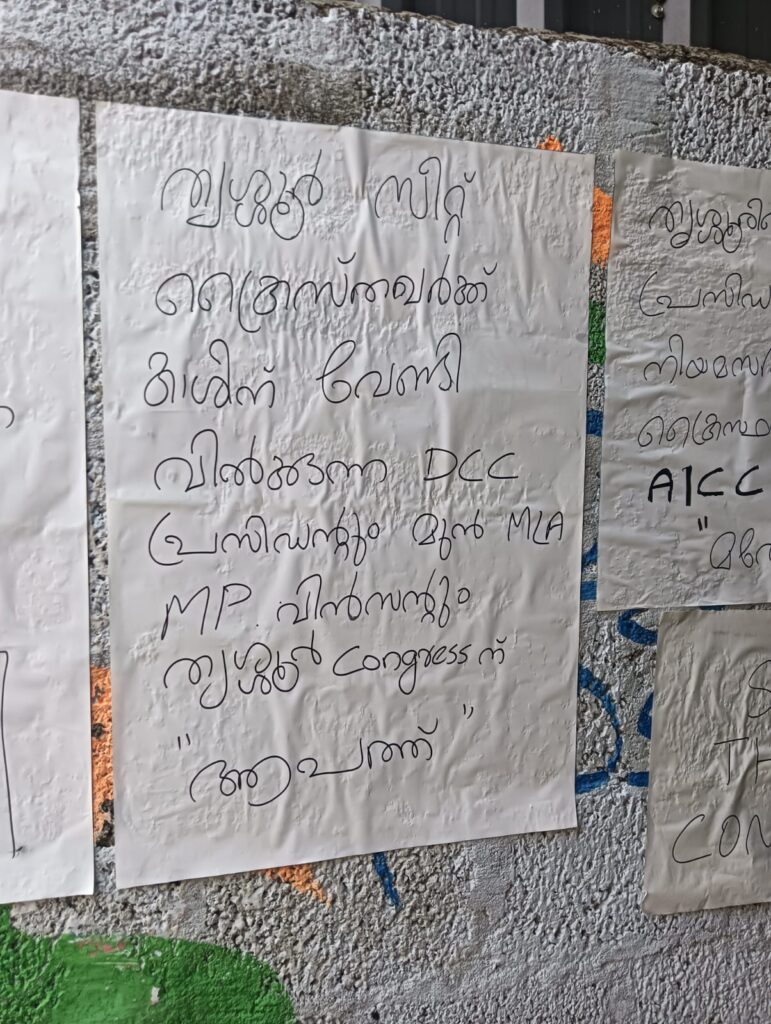 തൃശ്ശൂർ സീറ്റ്
ക്രൈസ്തവർക്ക്
കാശിന് വേണ്ടി
വിൽക്കുന്ന DCC
പ്രസിഡന്റും മുൻ MLA
MP. വിൻസന്റും
തൃശ്ശൂർ Congress ന്
"ആപത്ത്"
തൃശ്ശൂരി
പ്രസിഡ
നിയമസഭ
ക്രൈസ്ത
AICC
TH
CON